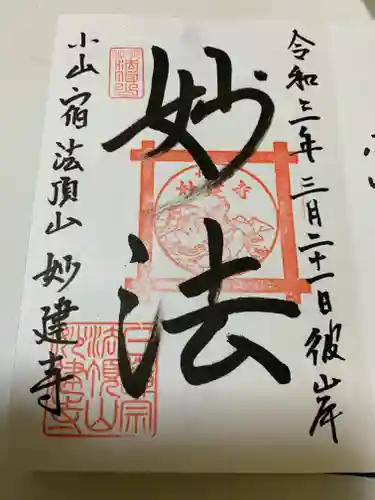 令和三年三月二十一日彼岸
妙法
小山宿法頂山妙建寺
妙建寺
日蓮宗
法頂山
妙建寺